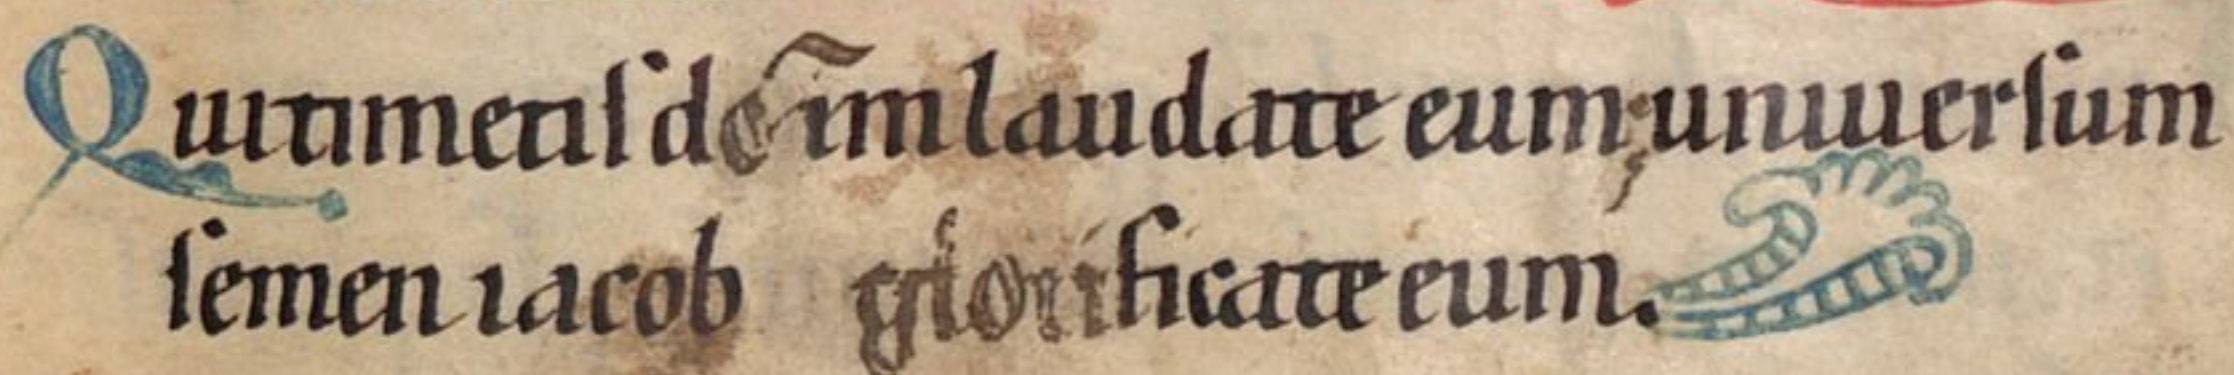 Qui timetis dn̄m laudate eum; uniuersum
semen iacob glorificate eum.